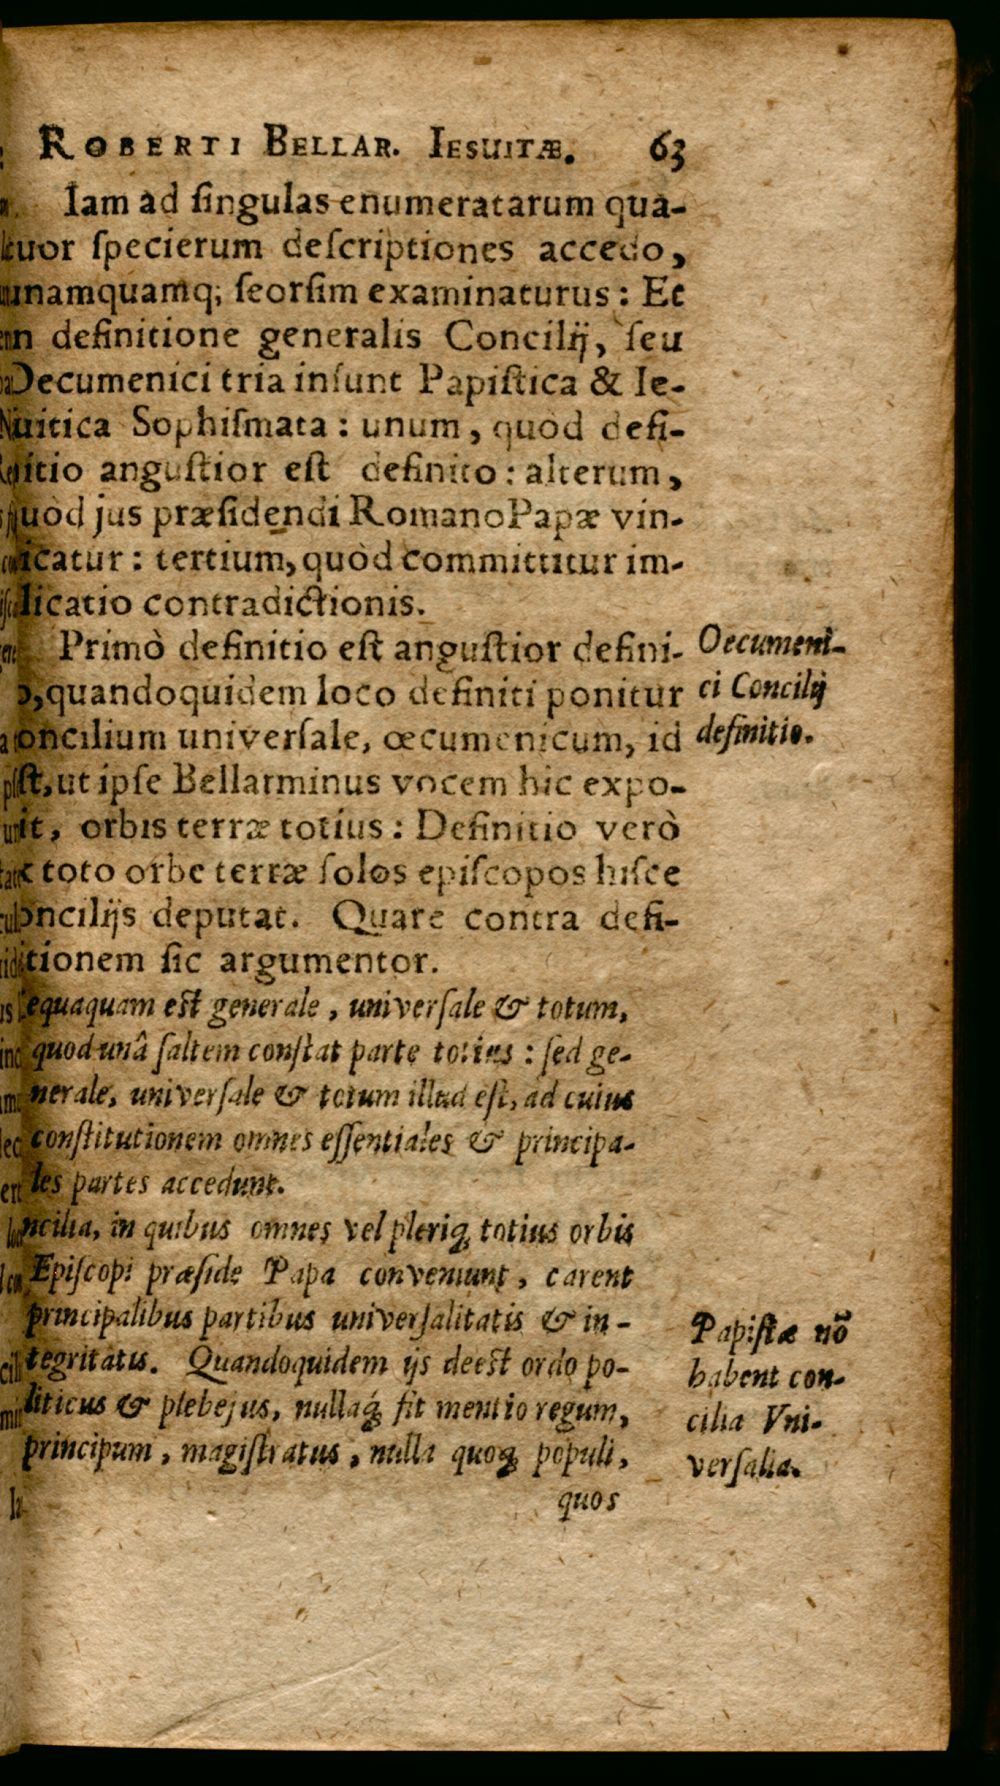 ROBERTI BELLAR. IESUITÆ. 63
Iam ad ſingulas enumeratarum qua-
tuor ſpecierum deſcriptiones accedo,
unamquamq; ſeorſim examinaturus: Et
in definitione generalis Concilij, ſeu
Oecumenici tria inſunt Papiſtica & Ie-
ſuitica Sophiſmata: unum, quòd defi-
nitio anguſtior eſt definito: alterum,
quòd jus præſidendi Romano Papæ vin-
dicatur: tertium, quòd committitur im-
plicatio contradictionis.
Primò definitio eſt anguſtior defini-
to, quandoquidem loco definiti ponitur
concilium univerſale, œcumenicum, id
eſt, ut ipſe Bellarminus vocem hic expo-
nit, orbis terræ totius: Definitio verò
ex toto orbe terræ ſolos epiſcopos hiſce
concilijs deputat. Quare contra defi-
nitionem ſic argumentor.
Oecumeni-
ci Concilij
definitio.
Nequaquam eſt generale, univerſale & totum,
quod unâ ſaltem conſtat parte totius: ſed ge-
nerale, univerſale & totum illud eſt, ad cuius
conſtitutionem omnes eſſentiales & principa-
les partes accedunt.
Concilia, in quibus omnes vel pleriq; totius orbis
Epiſcopi præſide Papa conveniunt, carent
principalibus partibus univerſalitatis & in-
tegritatis. Quandoquidem ijs deeſt ordo po-
liticus & plebejus, nullaq́; fit mentio regum,
principum, magiſtratus, nulla quoq; populi,
Papiſtæ nō
habent con-
cilia Vni-
verſalia.
quos